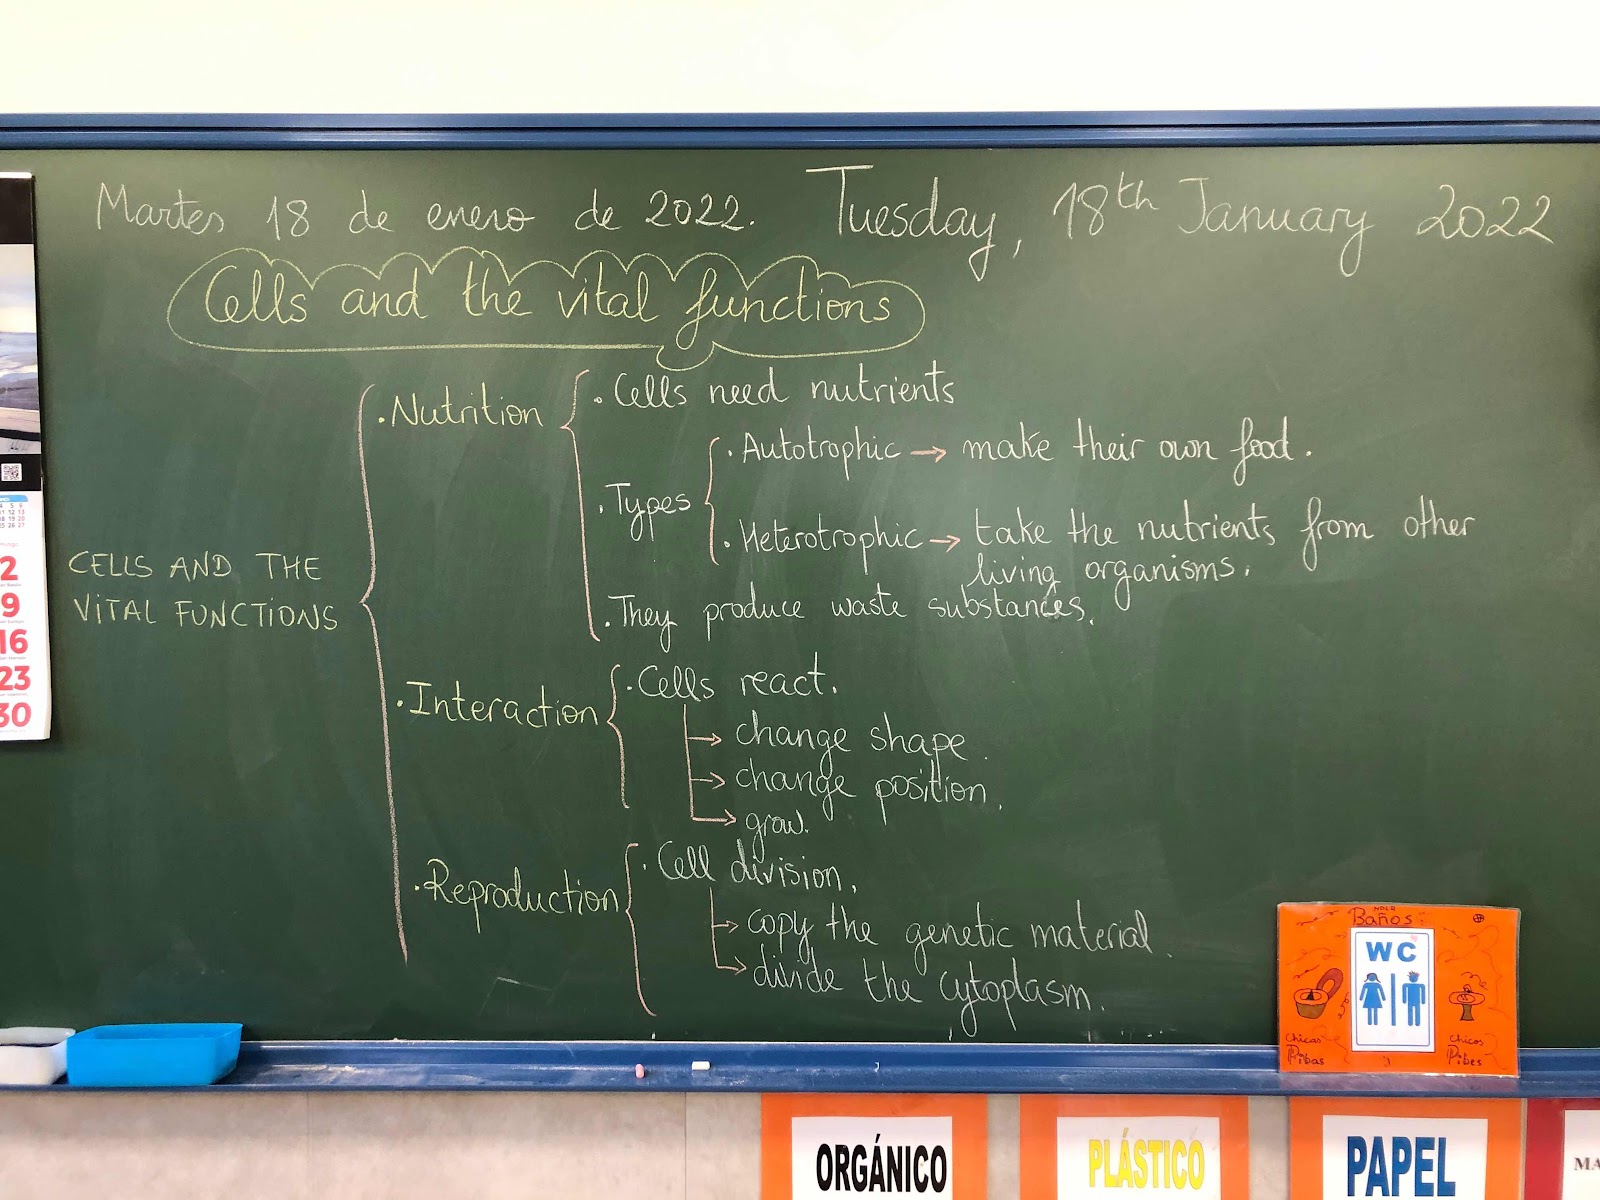 Martes 18 de enero de 2022. Tuesday, 18th January 2022
Cells and the vital functions
CELLS AND THE
VITAL FUNCTIONS
· Nutrition
· Cells need nutrients
· Types
· Autotrophic → make their own food.
· Heterotrophic → take the nutrients from other
living organisms.
· They produce waste substances.
· Interaction
· Cells react.
→ change shape.
→ change position.
→ grow.
· Reproduction
· Cell division.
→ copy the genetic material.
→ divide the cytoplasm.
2
9
16
23
30
Baños
WC
Chicas
Pibas
Chicos
Pibes
ORGÁNICO
PLÁSTICO
PAPEL